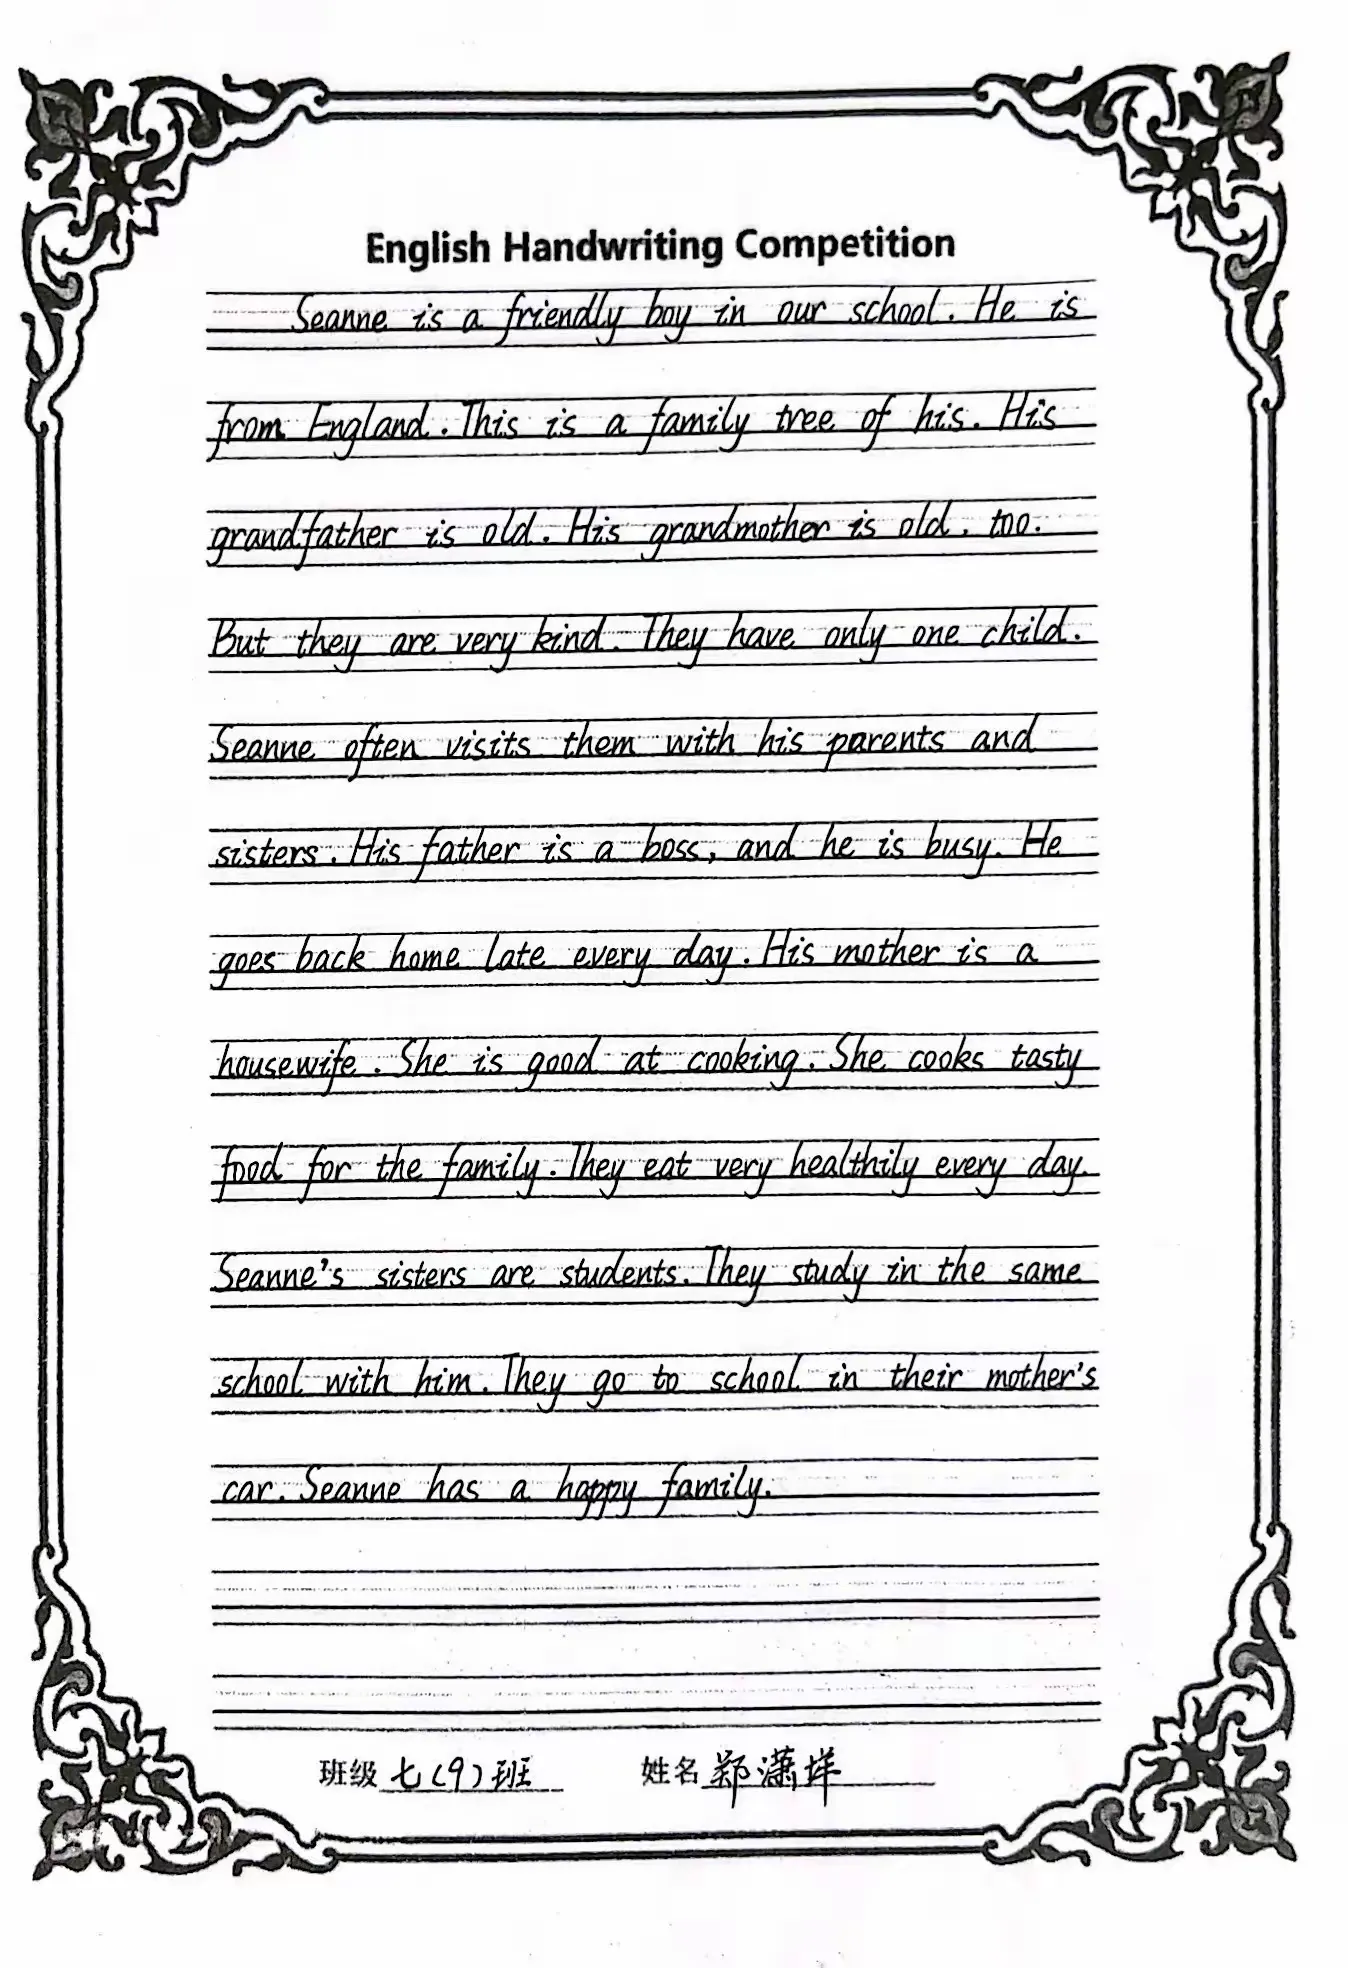 English Handwriting Competition
Seanne is a friendly boy in our school. He is
from England. This is a family tree of his. His
grandfather is old. His grandmother is old, too.
But they are very kind. They have only one child.
Seanne often visits them with his parents and
sisters. His father is a boss, and he is busy. He
goes back home late every day. His mother is a
housewife. She is good at cooking. She cooks tasty
food for the family. They eat very healthily every day.
Seanne's sisters are students. They study in the same
school with him. They go to school in their mother's
car. Seanne has a happy family.
班级 七(9)班 姓名 郑潇垟